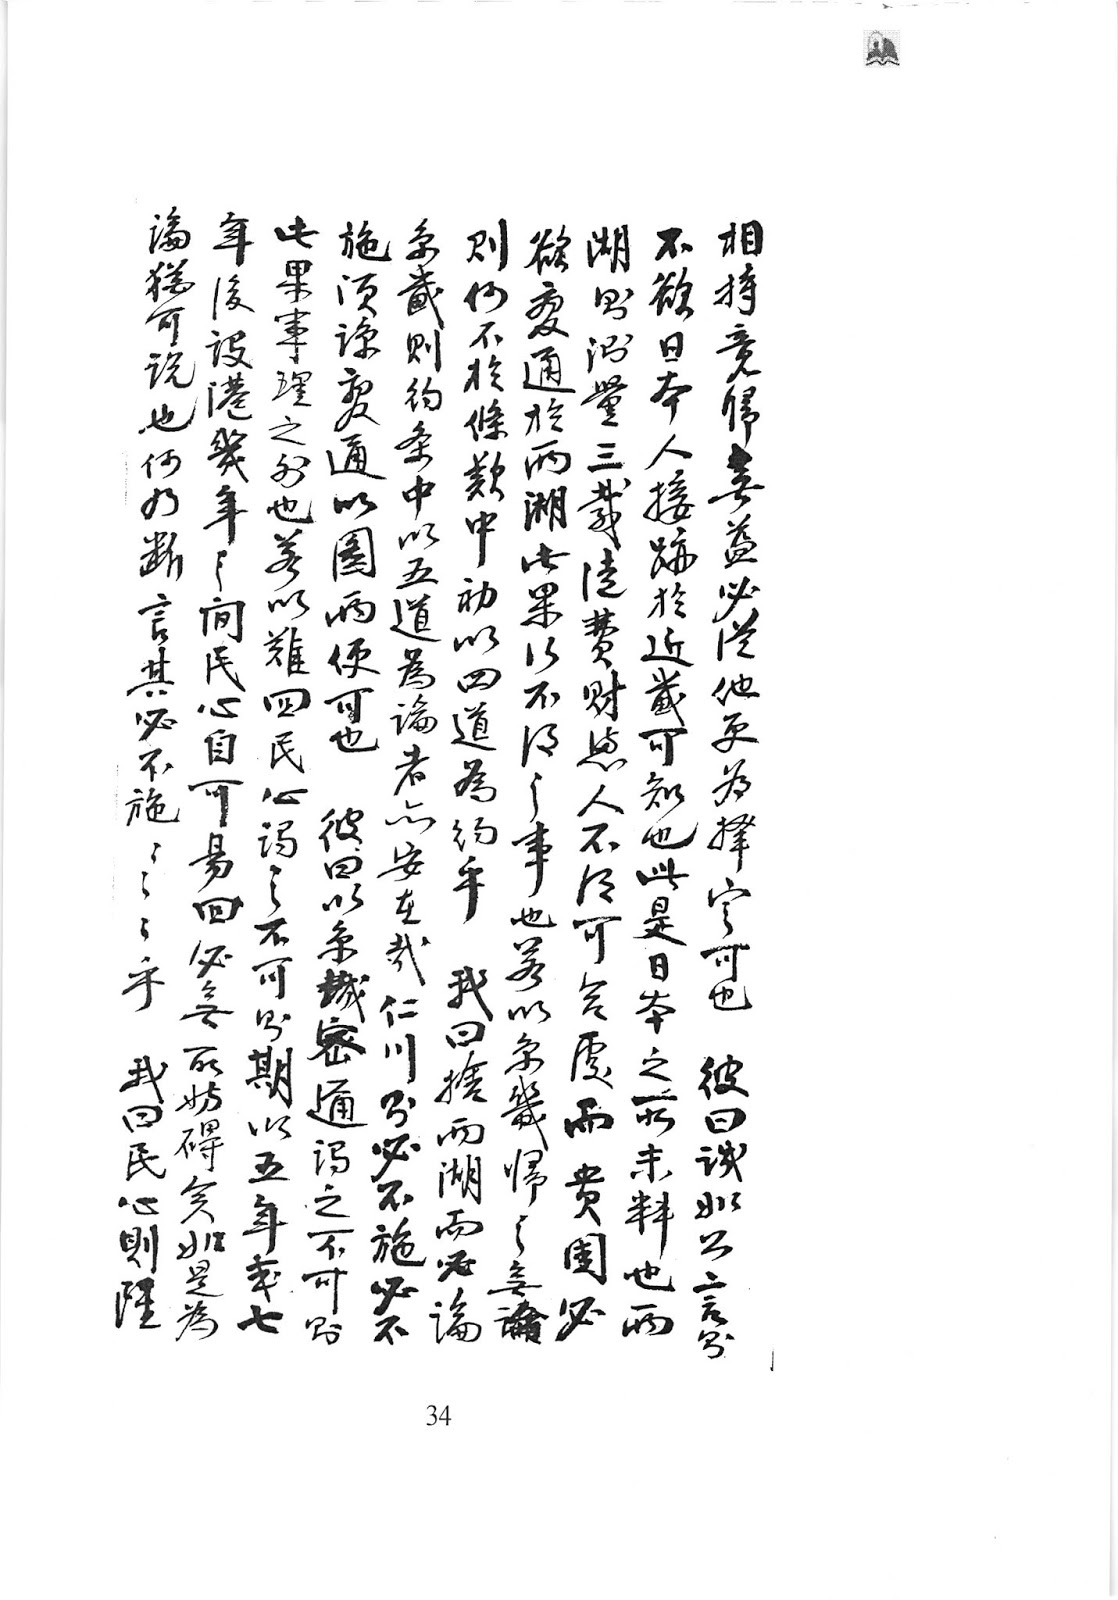 相持竟歸無益必從他更爲擇定可也 彼曰誠如公言則
不欲日本人接跡於近畿可知也此是日本之所未料也兩
湖則測量三載徒費財勞人不得可合處而 貴國必
欲變通於兩湖此果行不得之事也若以京畿歸之無論
則何不於條款中初以四道爲約乎 我曰捨兩湖而必論
京畿則約条中以五道爲論者亦安在哉仁川則必不施必不
施須諒變通以圖兩便可也 彼曰以京畿密通謂之不可則
此果事理之外也若以難回民心謂之不可則期以五年或七
年後設港幾年之間民心自可易回必無所妨碍矣如是爲
論猶可說也何乃斷言其必不施〻〻〻乎 我曰民心則雖
34